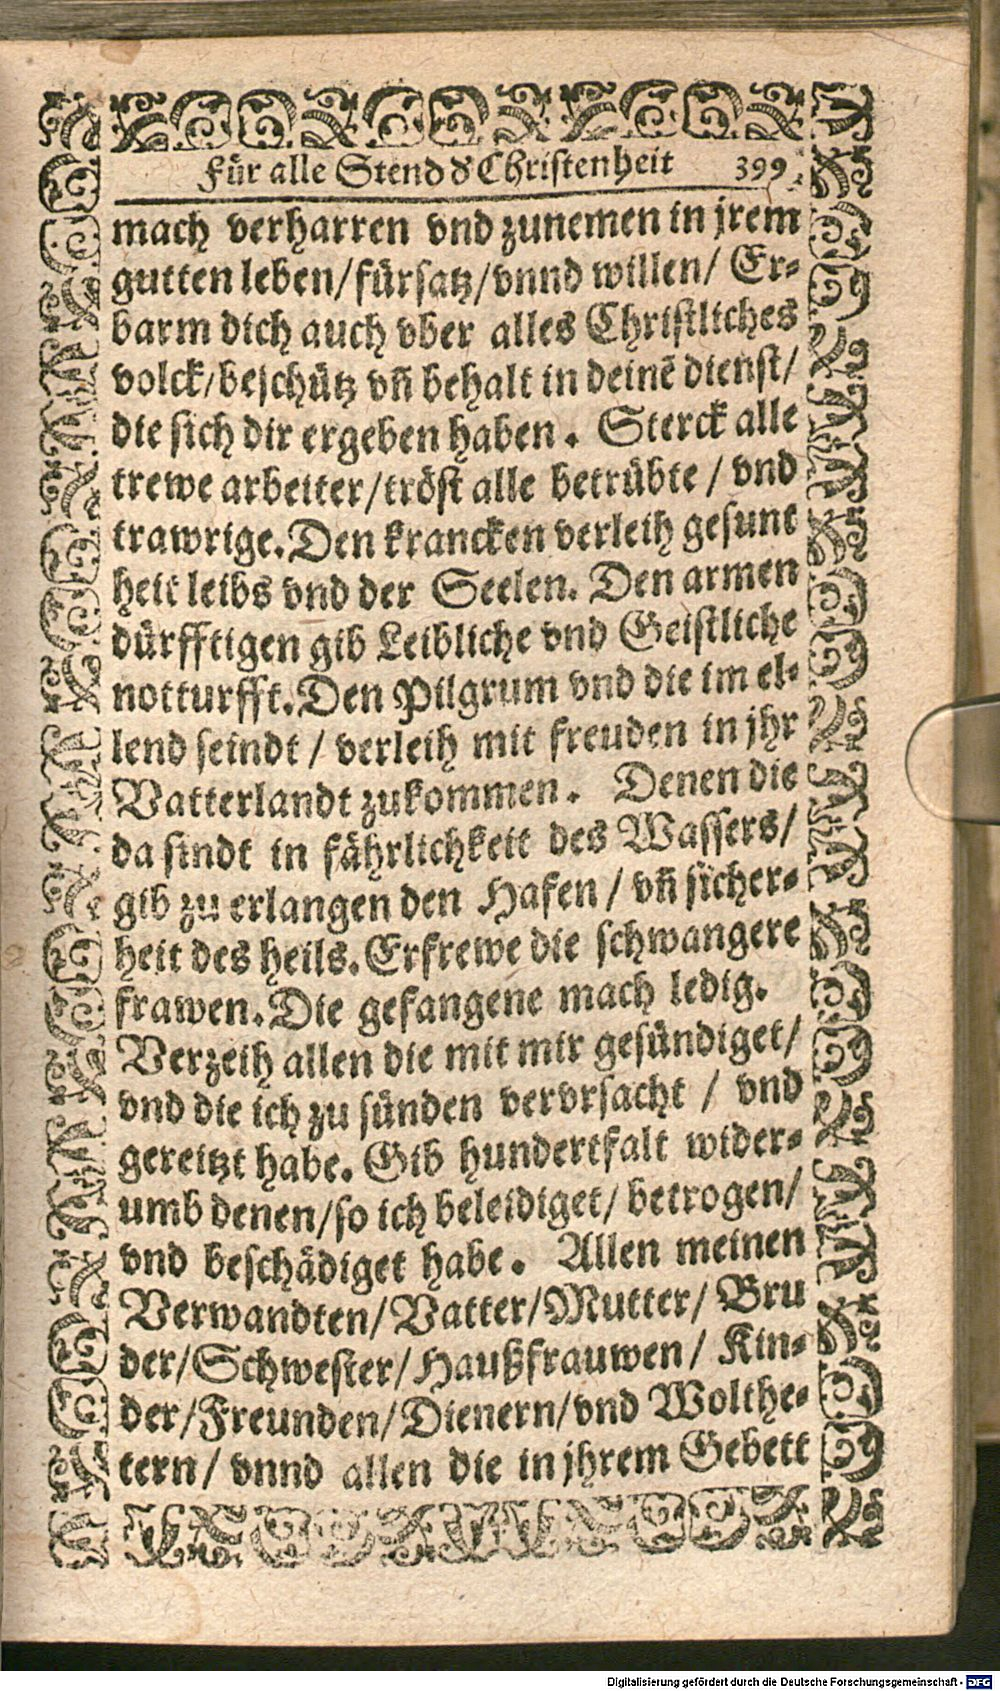 Für alle Stend d' Christenheit 399
mach verharren vnd zunemen in jrem
gutten leben/fürsatz/vnnd willen/ Er-
barm dich auch vber alles Christliches
volck/beschütz vñ behalt in deinē dienst/
die sich dir ergeben haben. Sterck alle
trewe arbeiter/tröst alle betrübte / vnd
trawrige. Den krancken verleih gesunt
heit leibs vnd der Seelen. Den armen
dürfftigen gib Leibliche vnd Geistliche
notturfft. Den Pilgrum vnd die im el-
lend seindt / verleih mit freuden in jhr
Vatterlandt zukommen. Denen die
da sindt in fährlichkeit des Wassers/
gib zu erlangen den Hafen / vñ sicher-
heit des heils. Erfrewe die schwangere
frawen. Die gefangene mach ledig.
Verzeih allen die mit mir gesündiget/
vnd die ich zu sünden vervrsacht / vnd
gereitzt habe. Gib hundertfalt wider-
umb denen/so ich beleidiget/ betrogen/
vnd beschädiget habe. Allen meinen
Verwandten/Vatter/Mutter/ Bru
der/Schwester/Haußfrauwen/ Kin-
der/Freunden/Dienern/vnd Wolthe-
tern/ vnnd allen die in jhrem Gebett
Digitalisierung gefördert durch die Deutsche Forschungsgemeinschaft - DFG